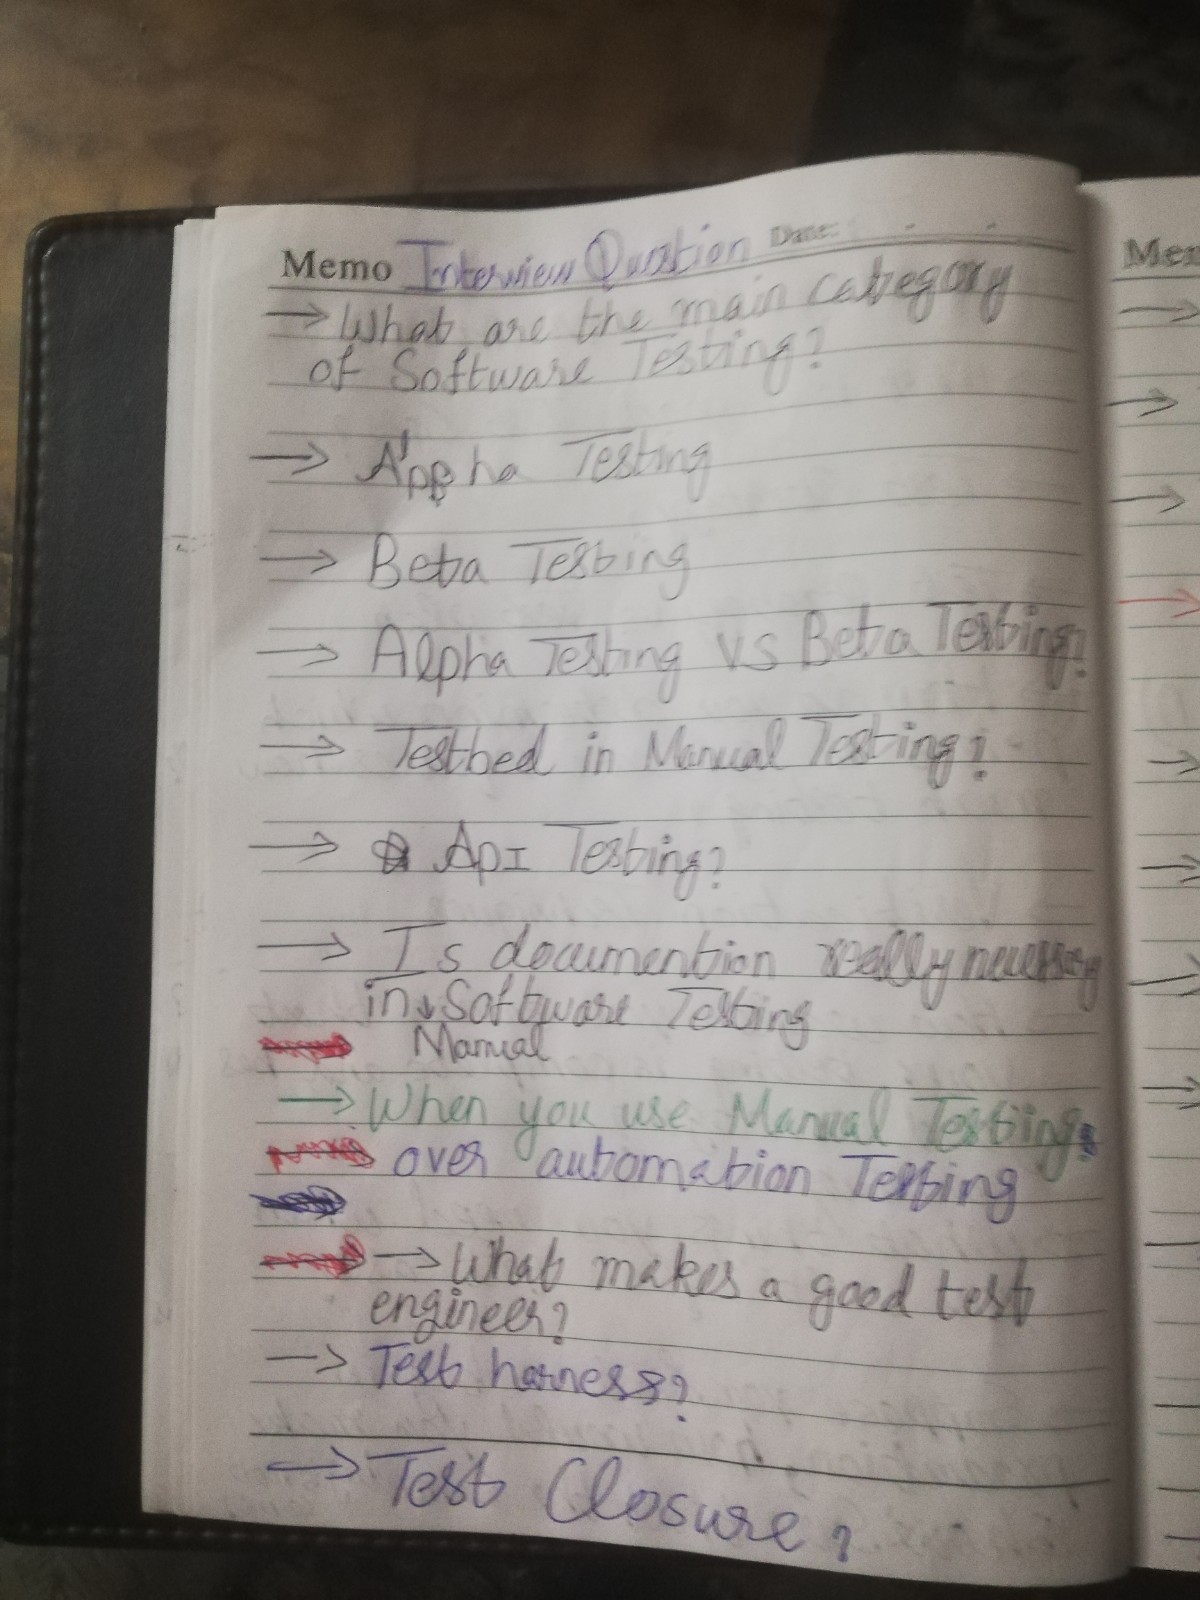 Memo Interview Qustion Date:
→ What are the main category
of Software Testing?
→ Alppha Testing
→ Beta Testing
→ Alpha Testing vs Beta Testing?
→ Testbed in Manual Testing?
→ ApI Testing?
→ Is documention really necessary
in Software Testing
Manual
→ When you use Manual Testing
over automation Testing
→ What makes a good test
engineer?
→ Test harness?
→ Test Closure?
Mem